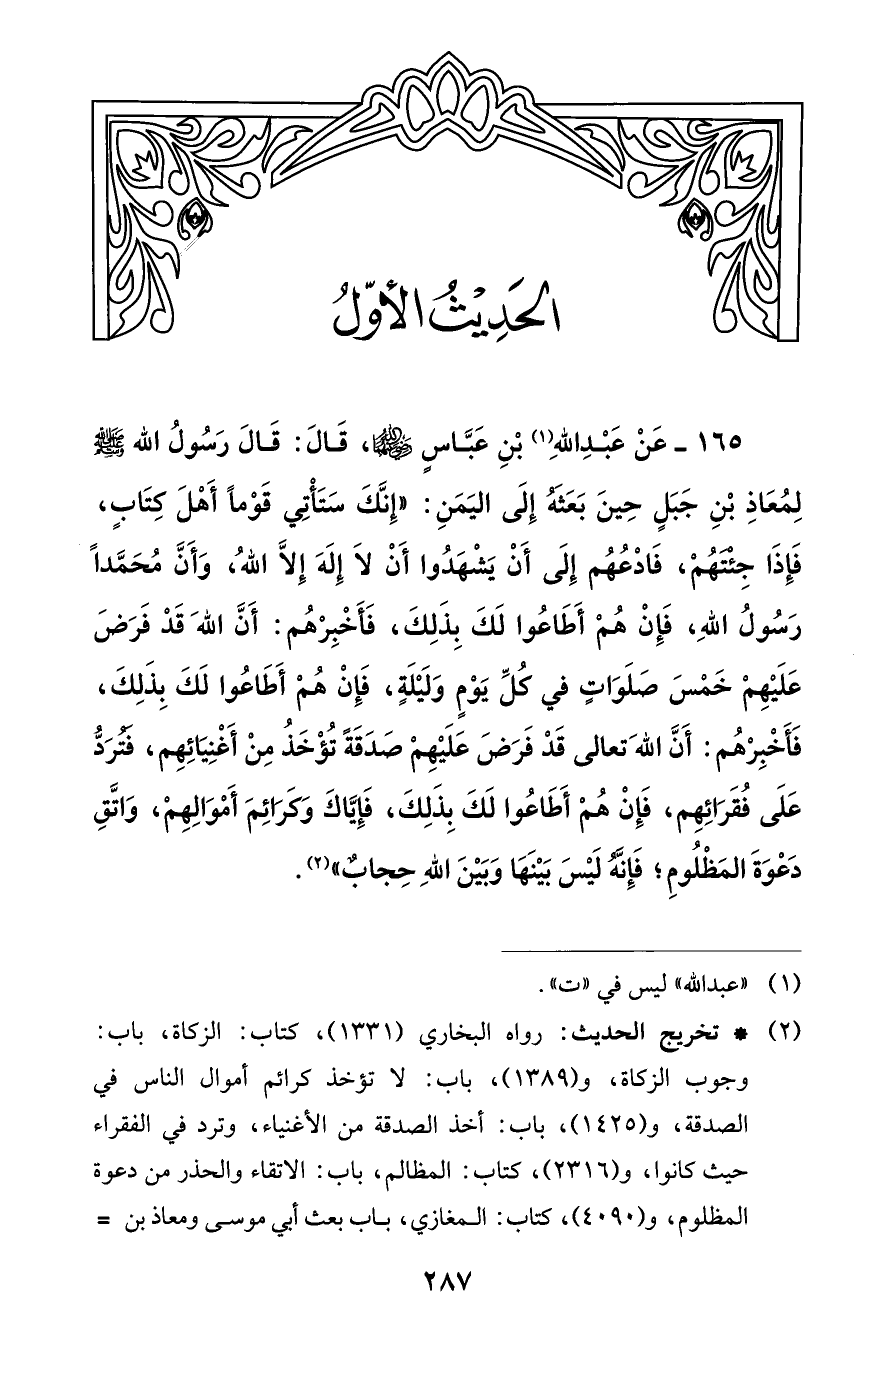 الحَدِيْثُ الأَوَّلُ
١٦٥ ـ عَنْ عَبْدِاللهِ(١) بْنِ عَبَّاسٍ ﵄، قَالَ: قَالَ رَسُولُ الله ﷺ
لِمُعَاذِ بْنِ جَبَلٍ حِينَ بَعَثَهُ إِلَى اليَمَنِ: «إِنَّكَ سَتَأْتِي قَوْماً أَهْلَ كِتَابٍ،
فَإِذَا جِئْتَهُمْ، فَادْعُهُم إِلَى أَنْ يَشْهَدُوا أَنْ لاَ إِلَهَ إِلاَّ اللهُ، وَأَنَّ مُحَمَّداً
رَسُولُ اللهِ، فَإِنْ هُمْ أَطَاعُوا لَكَ بِذَلِكَ، فَأَخْبِرْهُم: أَنَّ اللهَ قَدْ فَرَضَ
عَلَيْهِمْ خَمْسَ صَلَوَاتٍ في كُلِّ يَوْمٍ وَلَيْلَةٍ، فَإِنْ هُمْ أَطَاعُوا لَكَ بِذَلِكَ،
فَأَخْبِرْهُم: أَنَّ اللهَ تعالى قَدْ فَرَضَ عَلَيْهِمْ صَدَقَةً تُؤْخَذُ مِنْ أَغْنِيَائِهِم، فَتُرَدُّ
عَلَى فُقَرَائِهِم، فَإِنْ هُمْ أَطَاعُوا لَكَ بِذَلِكَ، فَإِيَّاكَ وَكَرَائِمَ أَمْوَالِهِمْ، وَاتَّقِ
دَعْوَةَ المَظْلُومِ؛ فَإِنَّهُ لَيْسَ بَيْنَهَا وَبَيْنَ اللهِ حِجابٌ»(٢).
(١) «عبدالله» ليس في «ت».
(٢) * تخريج الحديث: رواه البخاري (١٣٣١)، كتاب: الزكاة، باب:
وجوب الزكاة، و(١٣٨٩)، باب: لا تؤخذ كرائم أموال الناس في
الصدقة، و(١٤٢٥)، باب: أخذ الصدقة من الأغنياء، وترد في الفقراء
حيث كانوا، و(٢٣١٦)، كتاب: المظالم، باب: الاتقاء والحذر من دعوة
المظلوم، و(٤٠٩٠)، كتاب: المغازي، باب بعث أبي موسى ومعاذ بن =
٢٨٧